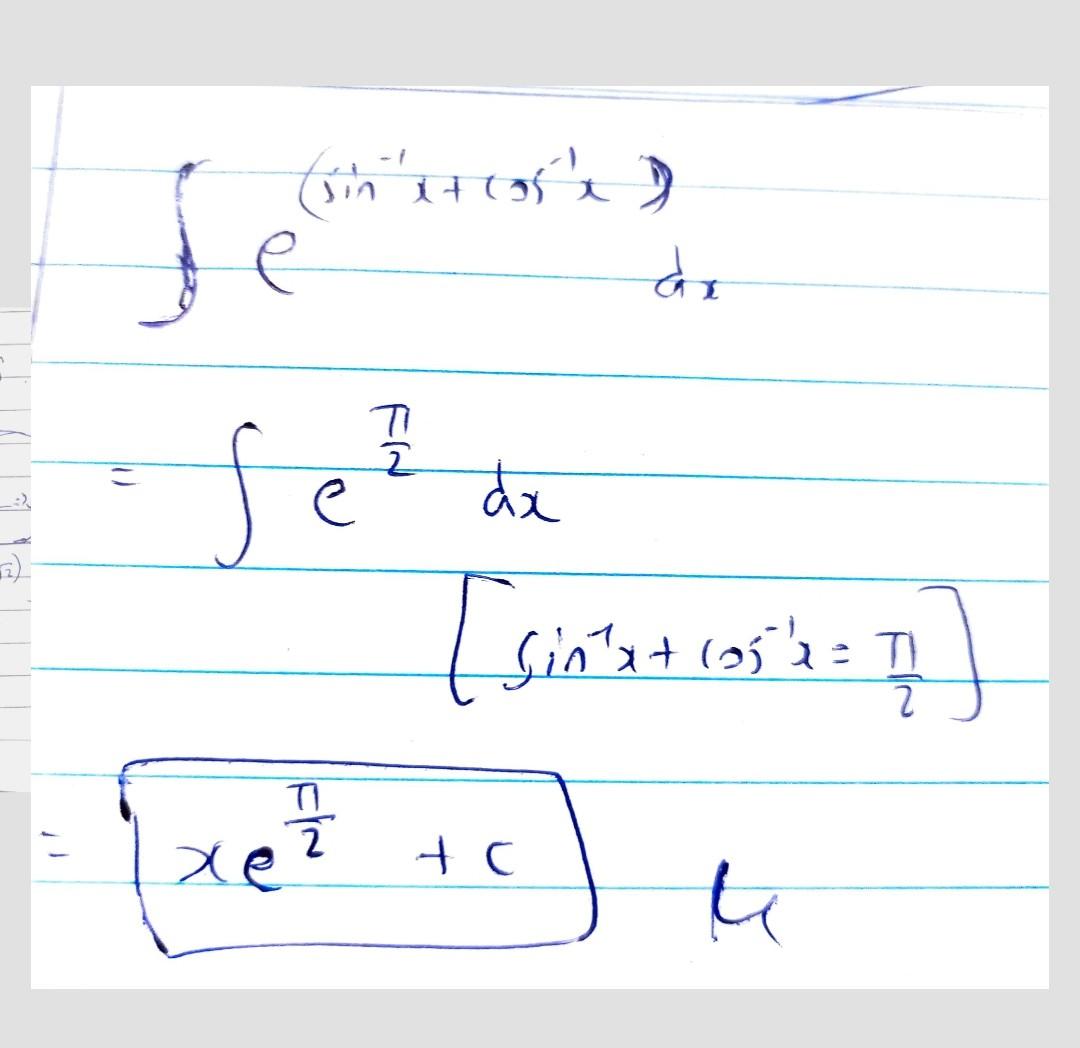 ∫ e^(sin⁻¹x + cos⁻¹x) dx
= ∫ e^(π/2) dx
[sin⁻¹x + cos⁻¹x = π/2]
= xe^(π/2) + c